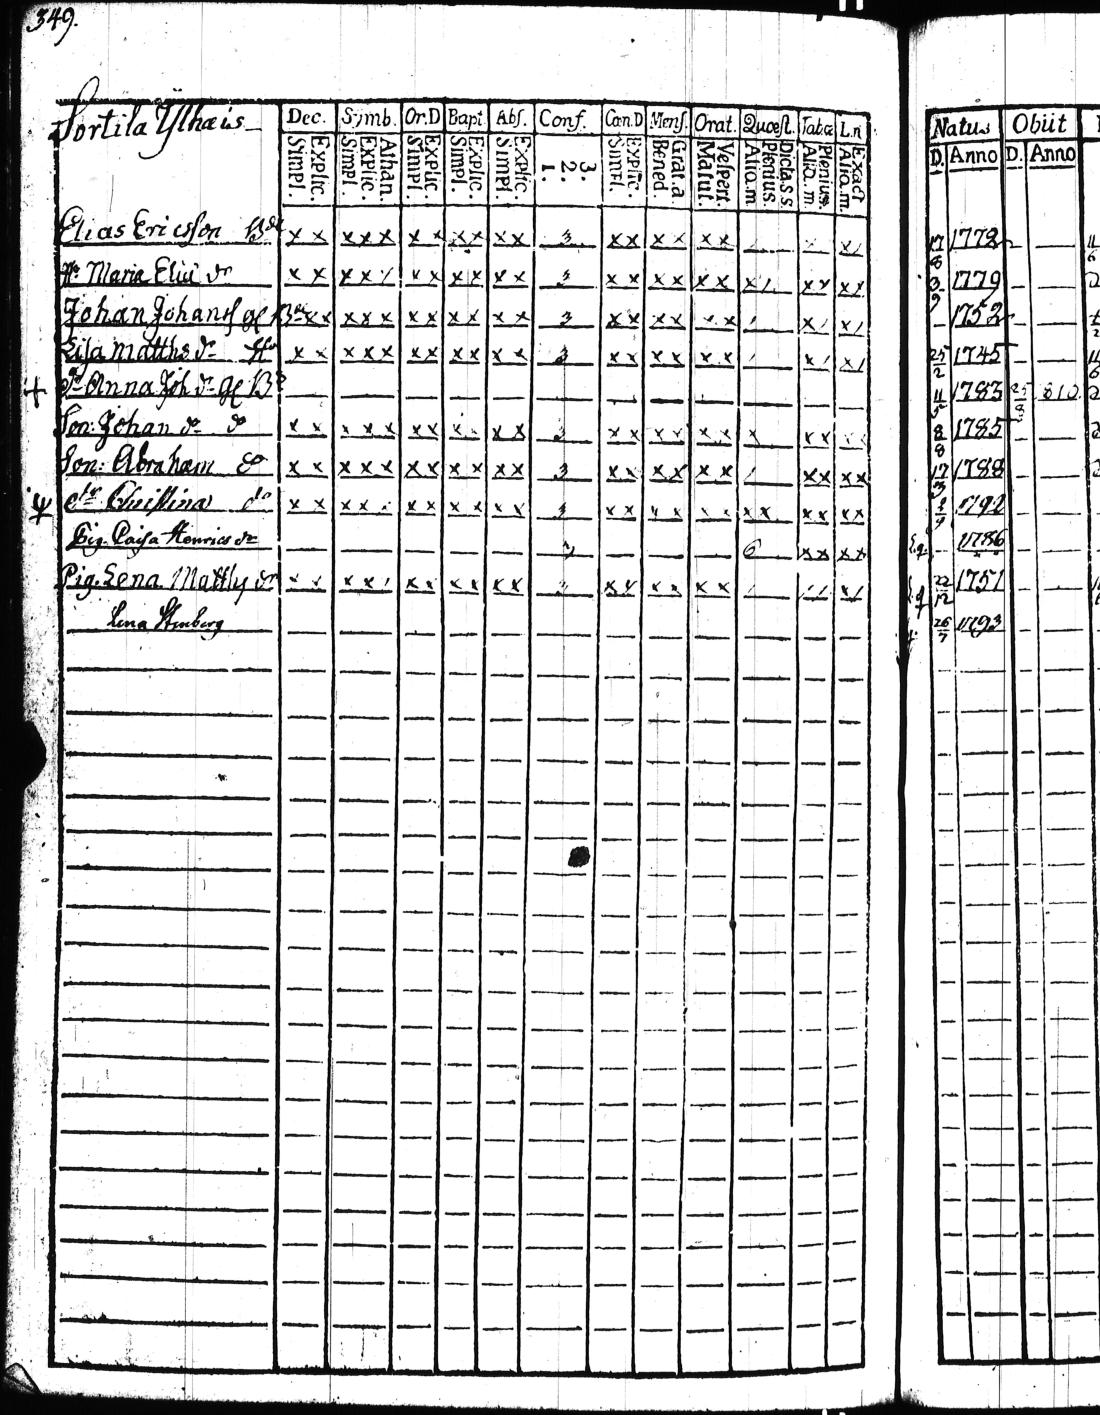 349.
Sortila Ylhäis
Dec. Symb. Or.D Bapt. Abs. Conf. Cœn.D Mens. Orat. Quæst. Tabæ L.n Natus Obiit
Simpl. Explic. Simpl. Explic. Athan. Simpl. Explic. Simpl. Explic. Simpl. Explic. 1. 2. 3. Simpl. Explic. Bened. Grat. a Matut. Vespert. Alio. m Plenius. Dicta. s s. Alio. m. Plenius. Alio m. Exact D. Anno D. Anno
Elias Ericsson x x x x x x x x x x x 3 x x x x x x 17/8 1778
Hu Maria Elia dr x x x x / x x x x x x 3 x x x x x x x / x x x x 3/9 1779
Johan Johans x x x x x x x x x x x 3 x x x x x x / x / x / 1752
Lisa Matths dr Hu x x x x x x x x x x x 3 x x x x x x / x / x / 25/2 1745
dr Anna Joh dr 11/5 1783 25/8 810
Son: Johan x x x x x x x x x x x 3 x x x x x x x x x 8/8 1785
Son: Abraham do x x x x x x x x x x x 3 x x x x x x / x x x x 17/3 1788
dr Christina do x x x x x x x x x x 3 x x x x x x x x x x x x 1792
Pig. Caisa Henrics dr 6 x x x x 1786
Pig. Lena Matts dr x x x x / x x x x x x x x x x x x / / / x / 22/12 1751
Lena Stenberg 26/7 1793